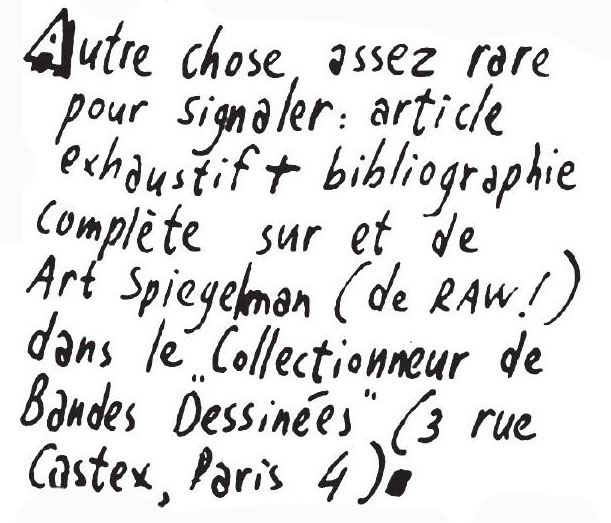 Autre chose, assez rare
pour signaler: article
exhaustif + bibliographie
complète sur et de
Art Spiegelman (de RAW!)
dans le "Collectionneur de
Bandes Dessinées" (3 rue
Castex, Paris 4).